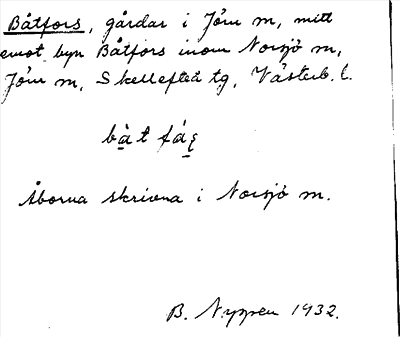 Båtfors, gårdar i Jörn m, mitt
emot byn Båtfors inom Norsjö m,
Jörn m, Skellefteå tg, Västerb. l.
Åborna skrivna i Norsjö m.
B. Nyppen 1932.